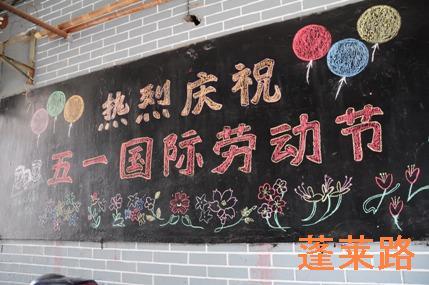 热烈庆祝
五一国际劳动节
蓬莱路